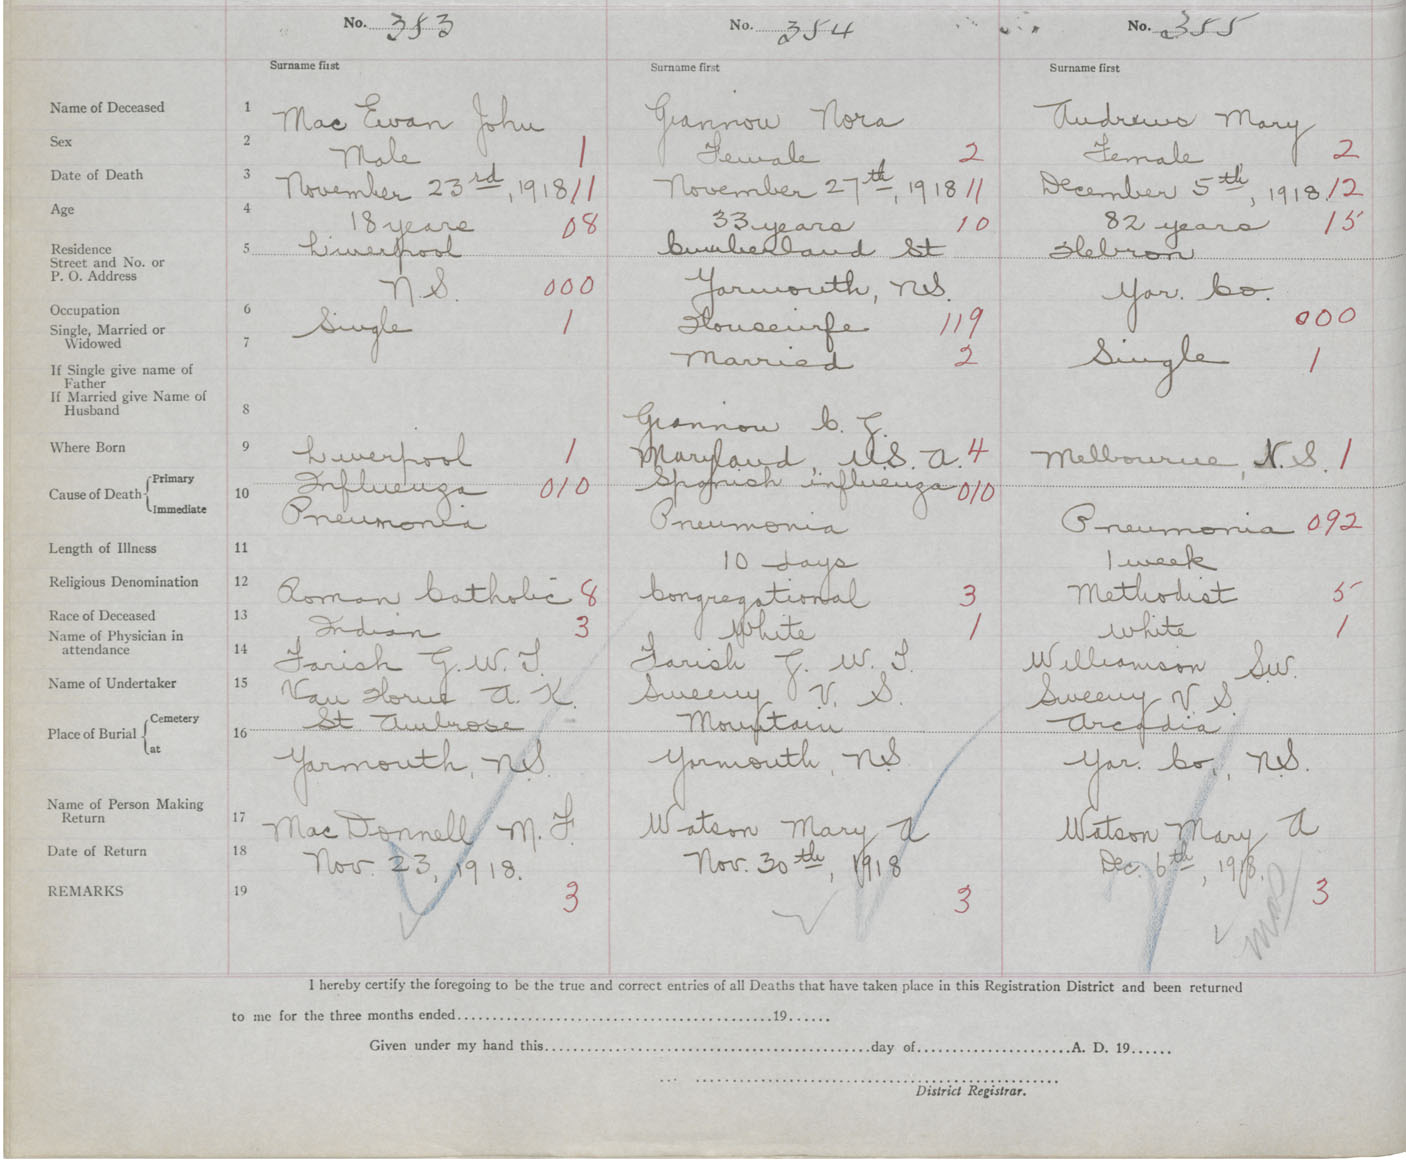 No. 353 No. 354 No. 355
Surname first Surname first Surname first
Name of Deceased 1 Mac Ewan John Giannou Nora Andrews Mary
Sex 2 Male 1 Female 2 Female 2
Date of Death 3 November 23rd, 1918 11 November 27th, 1918 11 December 5th, 1918. 12
Age 4 18 years 08 33 years 10 82 years 15
Residence 5 Liverpool Cumberland St Hebron
Street and No. or
P. O. Address N.S. 000 Yarmouth, N.S. Yar. Co.
Occupation 6 Housewife 119 000
Single, Married or Single 1
Widowed 7 Married 2 Single 1
If Single give name of
Father
If Married give Name of
Husband 8 Giannou C. G.
Where Born 9 Liverpool 1 Maryland, U.S.A. 4 Melbourne, N.S. 1
Cause of Death Primary 10 Influenza 010 Spanish influenza 010
Immediate Pneumonia Pneumonia Pneumonia 092
Length of Illness 11 10 days 1 week
Religious Denomination 12 Roman Catholic 8 Congregational 3 Methodist 5
Race of Deceased 13 Indian 3 White 1 White 1
Name of Physician in
attendance 14 Farish G. W. T. Farish G. W. T. Williamson S.W.
Name of Undertaker 15 Van Horne A. K. Sweeny V. S. Sweeny V. S.
Place of Burial Cemetery 16 St Ambrose Mountain Arcadia
at Yarmouth, N.S. Yarmouth, N.S. Yar. Co., N.S.
Name of Person Making
Return 17 Mac Donnell M. F. Watson Mary A Watson Mary A
Date of Return 18 Nov. 23, 1918. Nov. 30th, 1918 Dec. 6th, 1918.
REMARKS 19 3 3 3
I hereby certify the foregoing to be the true and correct entries of all Deaths that have taken place in this Registration District and been returned
to me for the three months ended 19
Given under my hand this day of A. D. 19
District Registrar.